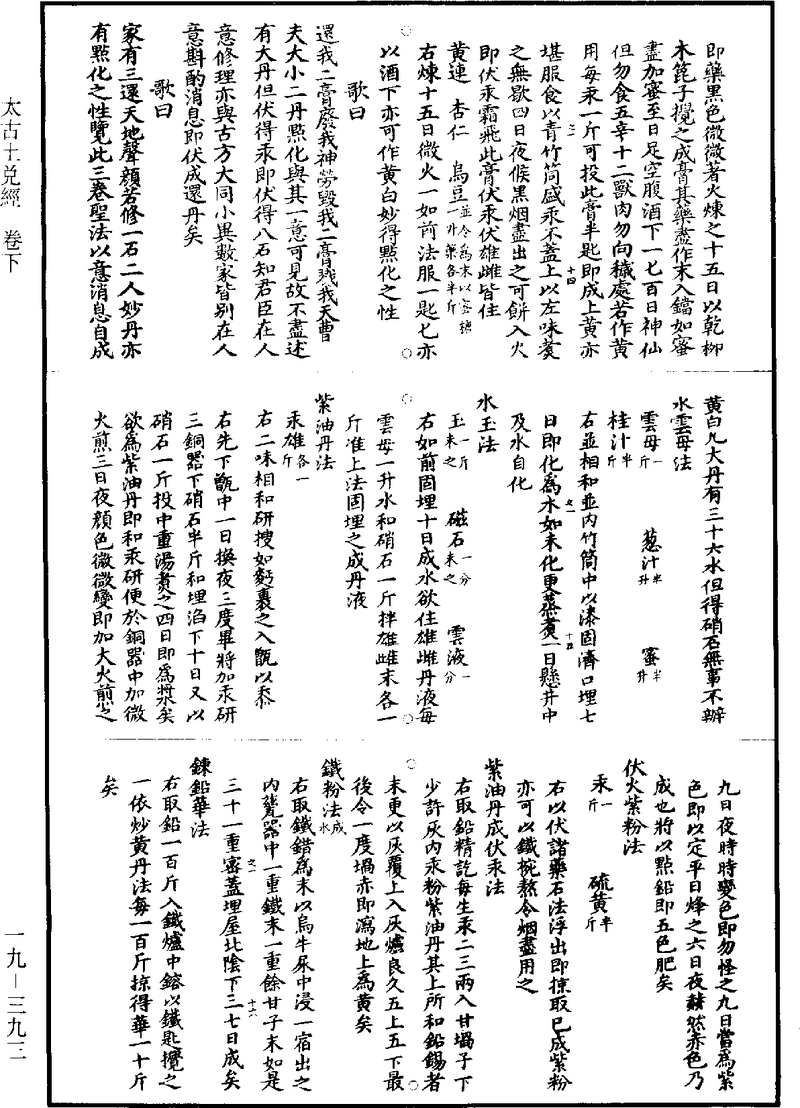 即藥黑色微微著火煉之十五日以乾柳
木箆子攪之成膏其藥盡作末入鐺如蜜
盡加蜜至日足空腹酒下一七百日神仙
但勿食五辛十二獸肉勿向穢處若作黃
用每汞一斤可投此膏半匙即成上黃亦
堪服食以青竹筒盛汞不蓋上以左味煑
之無歇四日夜候黑烟盡出之可餅入火
即伏汞霜飛此膏伏汞伏雄雌皆住
黃連 杏仁 烏豆並令爲末以蜜和一升藥各半斤
右煉十五日微火一如前法服一匙匕亦
以酒下亦可作黃白妙得點化之性
歌曰
還我二膏廢我神勞毀我二膏殘我天曹
夫大小二丹點化與其一意可見故不盡述
有大丹但伏得汞即伏得八石知君臣在人
意修理亦與古方大同小異數家皆別在人
意斟酌消息即伏成還丹矣
歌曰
家有三還天地聲顏若修一石二人妙丹亦
有點化之性覽此三卷聖法以意消息自成
黃白九大丹有三十六水但得硝石無事不辦
水雲母法
雲母一斤 葱汁半升 蜜半升
桂汁半斤
右並相和並內竹筒中以漆固濟口埋七
日即化爲水如未化更蒸煑一日懸井中
及水自化
水玉法
玉一斤末之 磁石一分末之 雲液一分
右如前固埋十日成水欲住雄雌丹液每
雲母一升水和硝石一斤拌雄雌末各一
斤准上法固埋之成丹液
紫油丹法
汞雄各一斤
右二味相和研搜如麪裹之入甑以黍
右先下甑中一日換夜三度畢將加汞研
三銅器下硝石半斤和埋淊下十日又以
硝石一斤投中重湯煑之四日即爲漿矣
欲爲紫油丹即和汞研便於銅器中加微
火煎三日夜顏色微微變即加大火煎之
九日夜時時變色即勿怪之九日當爲紫
色即以定平日烽之六日夜赫然赤色乃
成也將以點鉛即五色肥矣
伏火紫粉法
汞一斤 硫黃半斤
右以伏諸藥石法浮出即掠取已成紫粉
亦可以鐵椀熬令烟盡用之
紫油丹成伏汞法
右取鉛精訖每生汞二三兩入甘堝子下
少許灰內汞粉紫油丹其上所和鉛錫者
末更以灰覆上入灰爐良久五上五下最
後令一度堝赤即瀉地上爲黃矣
鐵粉法成水
右取鐵錯爲末以烏牛尿中浸一宿出之
內甕器中一重鐵末一重餘甘子末如是
三十一重密蓋埋屋北陰下三七日成矣
鍊鉛華法
右取鉛一百斤入鐵爐中鎔以鐵匙攪之
一依炒黃丹法每一百斤掠得華一十斤
矣
太古土兌經 卷下
一九－三九三